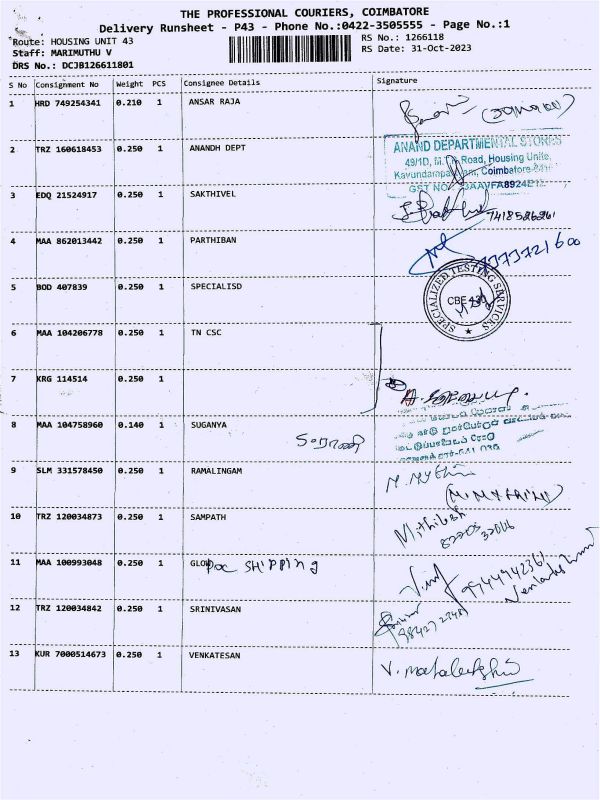 THE PROFESSIONAL COURIERS, COIMBATORE
Delivery Runsheet - P43 - Phone No.:0422-3505555 - Page No.:1
Route: HOUSING UNIT 43
RS No.: 1266118
Staff: MARIMUTHU V
RS Date: 31-Oct-2023
DRS No.: DCJB126611801
S No Consignment No Weight PCS Consignee Details Signature
1 HRD 749254341 0.210 1 ANSAR RAJA
2 TRZ 160618453 0.250 1 ANANDH DEPT
ANAND DEPARTMENTAL STORES
49/1D, Road, Housing Unit,
Coimbatore
GST NO
3 EDQ 21524917 0.250 1 SAKTHIVEL
7418586961
4 MAA 862013442 0.250 1 PARTHIBAN
5 BOD 407839 0.250 1 SPECIALISD
SPECIALIZED TESTING SERVICES
CBE
6 MAA 104206778 0.250 1 TN CSC
7 KRG 114514 0.250 1
8 MAA 104758960 0.140 1 SUGANYA
9 SLM 331578450 0.250 1 RAMALINGAM
M. Mythi
(M. MYTHILI)
10 TRZ 120034873 0.250 1 SAMPATH
Mithilesh
11 MAA 100993048 0.250 1 GLO DOC SHIPPING
9944942361
12 TRZ 120034842 0.250 1 SRINIVASAN
13 KUR 7000514673 0.250 1 VENKATESAN
V. Mahalakshmi